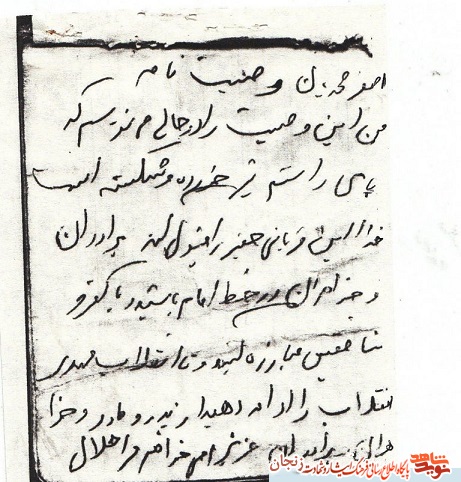 اصغر محمدیان وصیت نامه
من این وصیت را در حالی می نویسم که
پای راستم تیر خورده و شکسته است
خدا این قربانی حقیر را قبول کند برادران
و خواهران در خط امام باشید با کفر و
منافقین مبارزه کنید و تا انقلاب مهدی
انقلاب را ادامه دهید پدر و مادر و خوا
هران برادران عزیزم می خواهم مرا حلال
نوید شاهد
پایگاه اطلاع رسانی فرهنگ ایثار و شهادت زنجان